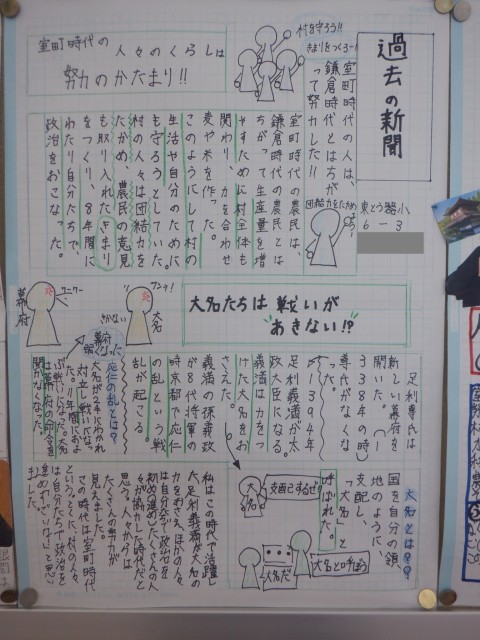 過去の新聞
東とう器小
6-3
室町時代の人は、
鎌倉時代とはちが
って努力した!!
村を守ろう!!
きまりをつくろー!
団結力をたかめ
よう!
室町時代の
人々のくらしは
努力のかたまり!!
室町時代の農民は、
鎌倉時代の農民とは
ちがって生産量を増
やすために村全体も
関わり、力を合わせ
麦や米を作った。
このようにして村の
生活や自分のために
も守ろうとしていた。
村の人々は団結力を
たかめ、農民の意見
も取り入れたきまり
をつくり、8年間に
わたり自分たちで、
政治をおこなった。
大名たちは戦いが
あきない!?
幕府
大名
足利尊氏は
新しい幕府を
開いた。(1
338年の時)
尊氏がなくな
った。
〜1394年
足利義満が太
政大臣になる。
義満は力をつ
けた大名をお
さえた。
義満の孫義政
が8代将軍の
時京都で応仁
の乱という戦
乱が起こる。
応仁の乱とは?
幕府
弱くなった
大名が2手にわかれ
対立し戦いになっ
た。11年間におよ
ぶ戦いになった。大名
は幕府の命令を
聞かなくなった。
大名とは??
国を自分の領
地のように
支配し、
「大名」と
呼ばれた。
支配するぞ!!
大名
大名だ
大名と呼ぼう
私はこの時代で活躍し
た足利義満が大名の
力をおさえ、ほかの人々
は自分たちで政治を
初め進め、たくさんの人
々が協力した時代だと
思う。人々から
たくさんの努力が
見えました。
この時代は室町時代
ということに、村の人々
は自分たちで政治を
進めすごいなと思い
ました。